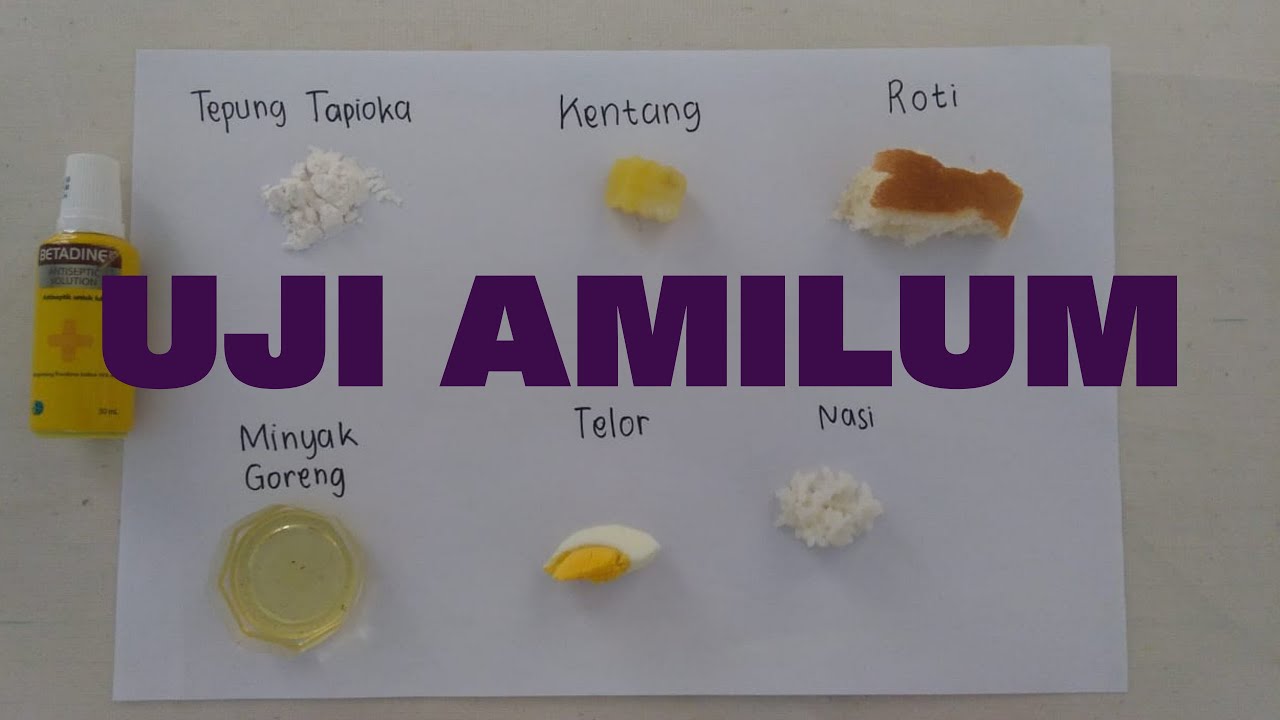 Tepung Tapioka
Kentang
Roti
BETADINE
ANTISEPTIC
SOLUTION
UJI AMILUM
30 mL
Minyak
Goreng
Telor
Nasi